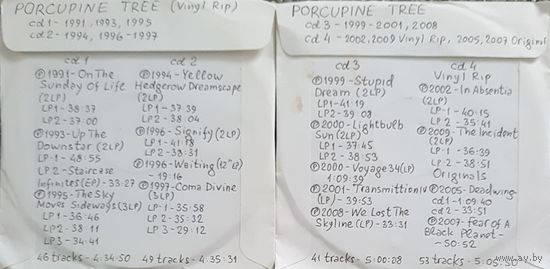 PORCUPINE TREE (Vinyl Rip)
cd1 - 1991, 1993, 1995
cd2 - 1994, 1996-1997
cd1
Ⓟ1991 - On The
Sunday Of Life
(2LP)
LP1 - 38:37
LP2 - 37:00
Ⓟ1993 - Up The
Downstair (2LP)
LP-1 - 48:55
LP2 - Staircase
Infinites (EP) - 33:27
Ⓟ1995 - The Sky
Moves Sideways (3LP)
LP1 - 36:46
LP2 - 38:11
LP3 - 34:41
46 tracks - 4:34:50
cd 2
Ⓟ1994 - Yellow
Hedgerow Dreamscape
(2LP)
LP1 - 37:39
LP2 - 38:04
Ⓟ1996 - Signify (2LP)
LP1 - 41:18
LP2 - 38:31
Ⓟ1996 - Waiting (12" LP)
- 19:16
Ⓟ1997 - Coma Divine
(3LP)
LP-1 - 35:58
LP-2 - 35:32
LP-3 - 29:12
49 tracks - 4:35:31
PORCUPINE TREE
cd3 - 1999-2001, 2008
cd 4 - 2002, 2009 Vinyl Rip, 2005, 2007 Original
cd3
Ⓟ1999 - Stupid
Dream (2LP)
LP1 - 41:19
LP2 - 39:08
Ⓟ2000 - Lightbulb
Sun (2LP)
LP1 - 37:45
LP2 - 38:53
Ⓟ2000 - Voyage 34 (LP)
1:09:39
Ⓟ2001 - Transmittion IV
(LP) - 39:53
Ⓟ2008 - We Lost The
Skyline (LP) - 33:31
41 tracks - 5:00:08
cd 4
Vinyl Rip
Ⓟ2002 - In Absentia
(2LP)
LP-1 - 40:15
LP2 - 35:41
Ⓟ2009 - The Incident
(2LP)
LP-1 - 36:39
LP-2 - 38:51
Originals
Ⓟ2005 - Deadwing
cd1 - 1:09:40
cd2 - 33:51
Ⓟ2007 - Fear of A
Black Planet -
- 50:52
53 tracks - 5:05:30
www.av.by